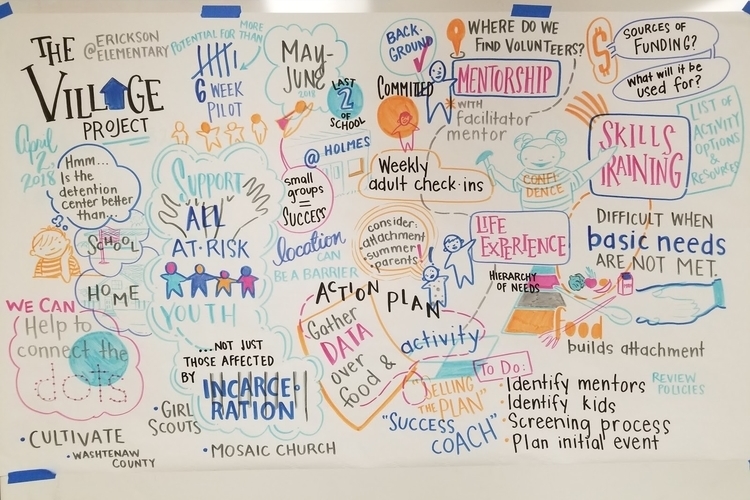 THE
VILLAGE
PROJECT
@ERICKSON
ELEMENTARY
April
2,
2018
Hmm...
Is the
detention
center better
than...
SCHOOL
HOME
WE CAN
Help to
connect the
dots
• CULTIVATE
• WASHTENAW
COUNTY
POTENTIAL FOR
MORE
THAN
6 WEEK
PILOT
MAY-
JUNE
2018
LAST
2
OF
SCHOOL
@ HOLMES
small
groups
=
SUCCESS
SUPPORT
ALL
AT-RISK
YOUTH
...NOT JUST
THOSE AFFECTED
BY
INCARCE-
RATION
• GIRL
SCOUTS
• MOSAIC CHURCH
location
CAN
BE A BARRIER
BACK-
GROUND
COMMITTED
WHERE DO WE
FIND VOLUNTEERS?
MENTORSHIP
* WITH
facilitator
mentor
Weekly
adult check-ins
consider:
• attachment
• summer
• parents!
CONFI
DENCE
LIFE
EXPERIENCE
ACTION PLAN
Gather
DATA
over
food &
activity
SOURCES OF
FUNDING?
What will it be
used for?
$
SKILLS
TRAINING
LIST OF
ACTIVITY
OPTIONS
&
RESOURCES
DIFFICULT WHEN
basic needs
ARE NOT MET.
HIERARCHY
OF NEEDS
food
builds attachment
To Do:
"SELLING
THE PLAN"
"SUCCESS
COACH"
• Identify mentors
• Identify kids
• Screening process
• Plan initial event
REVIEW
POLICIES